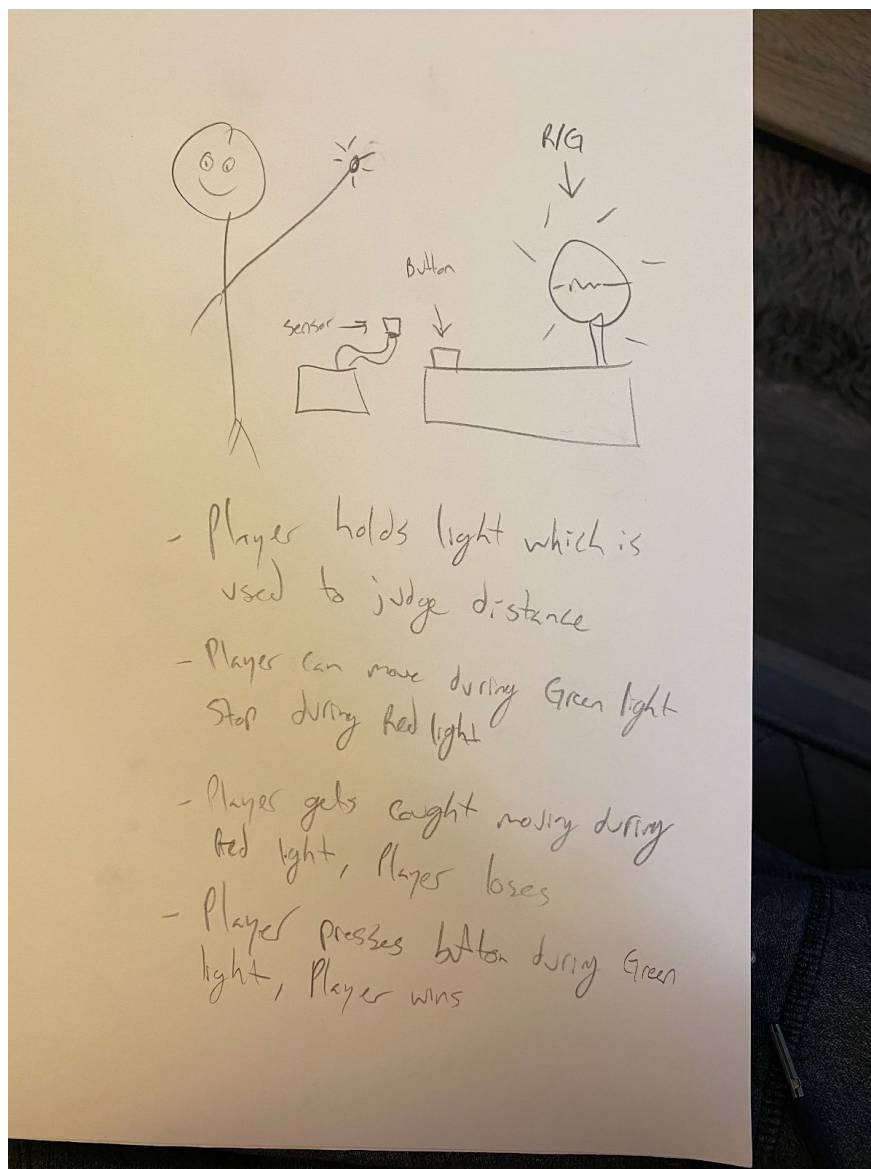 R/G
Button
Sensor
- Player holds light which is
used to judge distance
- Player can move during Green light
Stop during Red light
- Player gets caught moving during
Red light, Player loses
- Player presses button during Green
light, Player wins